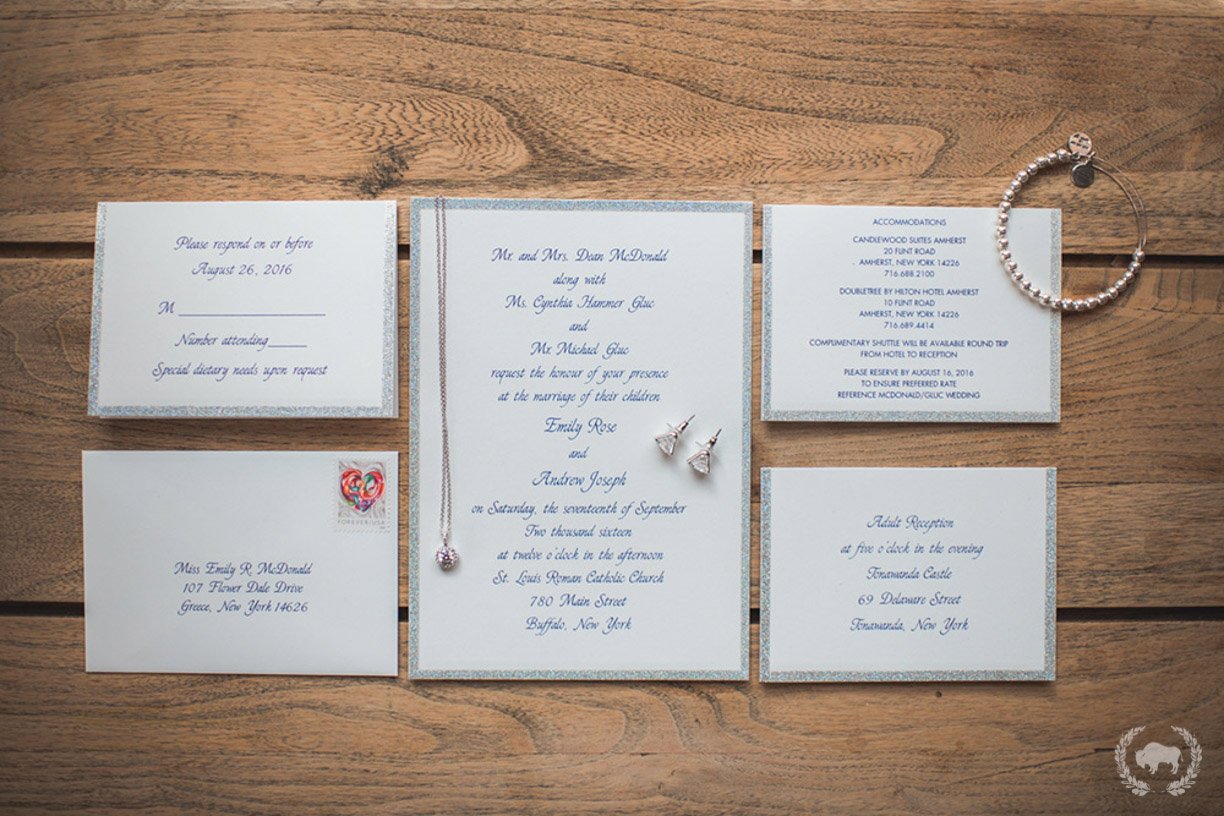 Please respond on or before
August 26, 2016
M
Number attending
Special dietary needs upon request
Mr. and Mrs. Dean McDonald
along with
Ms. Cynthia Hammer Gluc
and
Mr. Michael Gluc
request the honour of your presence
at the marriage of their children
Emily Rose
and
Andrew Joseph
on Saturday, the seventeenth of September
Two thousand sixteen
at twelve o'clock in the afternoon
St. Louis Roman Catholic Church
780 Main Street
Buffalo, New York
ACCOMMODATIONS
CANDLEWOOD SUITES AMHERST
20 FLINT ROAD
AMHERST, NEW YORK 14226
716.688.2100
DOUBLETREE BY HILTON HOTEL AMHERST
10 FLINT ROAD
AMHERST, NEW YORK 14226
716.689.4414
COMPLIMENTARY SHUTTLE WILL BE AVAILABLE ROUND TRIP
FROM HOTEL TO RECEPTION
PLEASE RESERVE BY AUGUST 16, 2016
TO ENSURE PREFERRED RATE
REFERENCE MCDONALD/GLUC WEDDING
FOREVER/USA
Miss Emily R. McDonald
107 Flower Dale Drive
Greece, New York 14626
Adult Reception
at five o'clock in the evening
Tonawanda Castle
69 Delaware Street
Tonawanda, New York